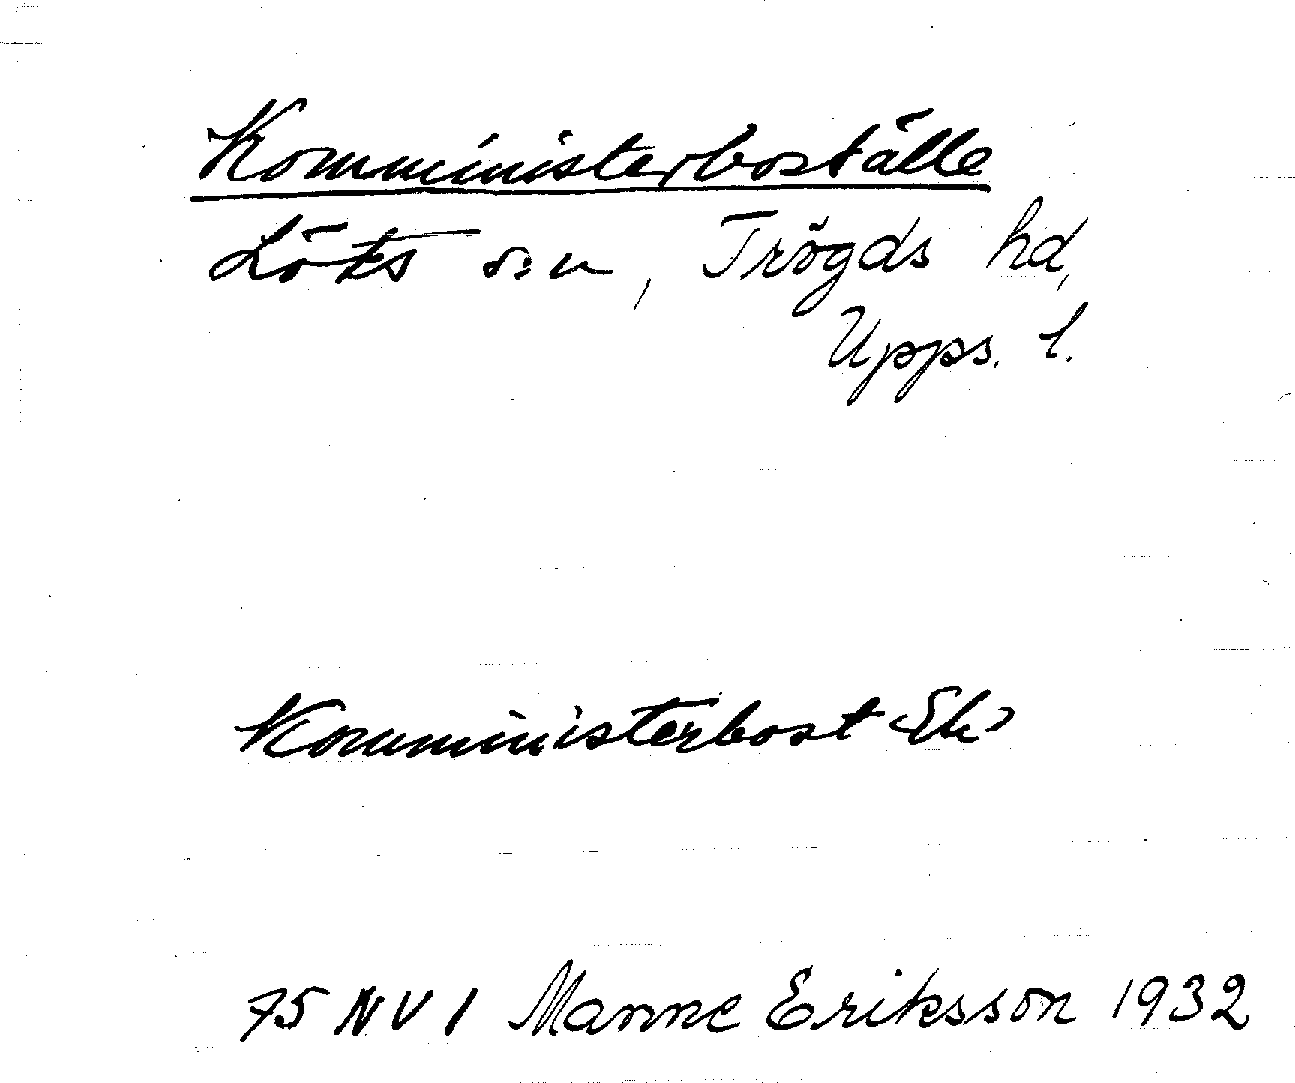 Komministerboställe
Löts sn, Trögds hd,
Upps. l.
Komministerbost <Ek>
75 NV 1 Manne Eriksson 1932